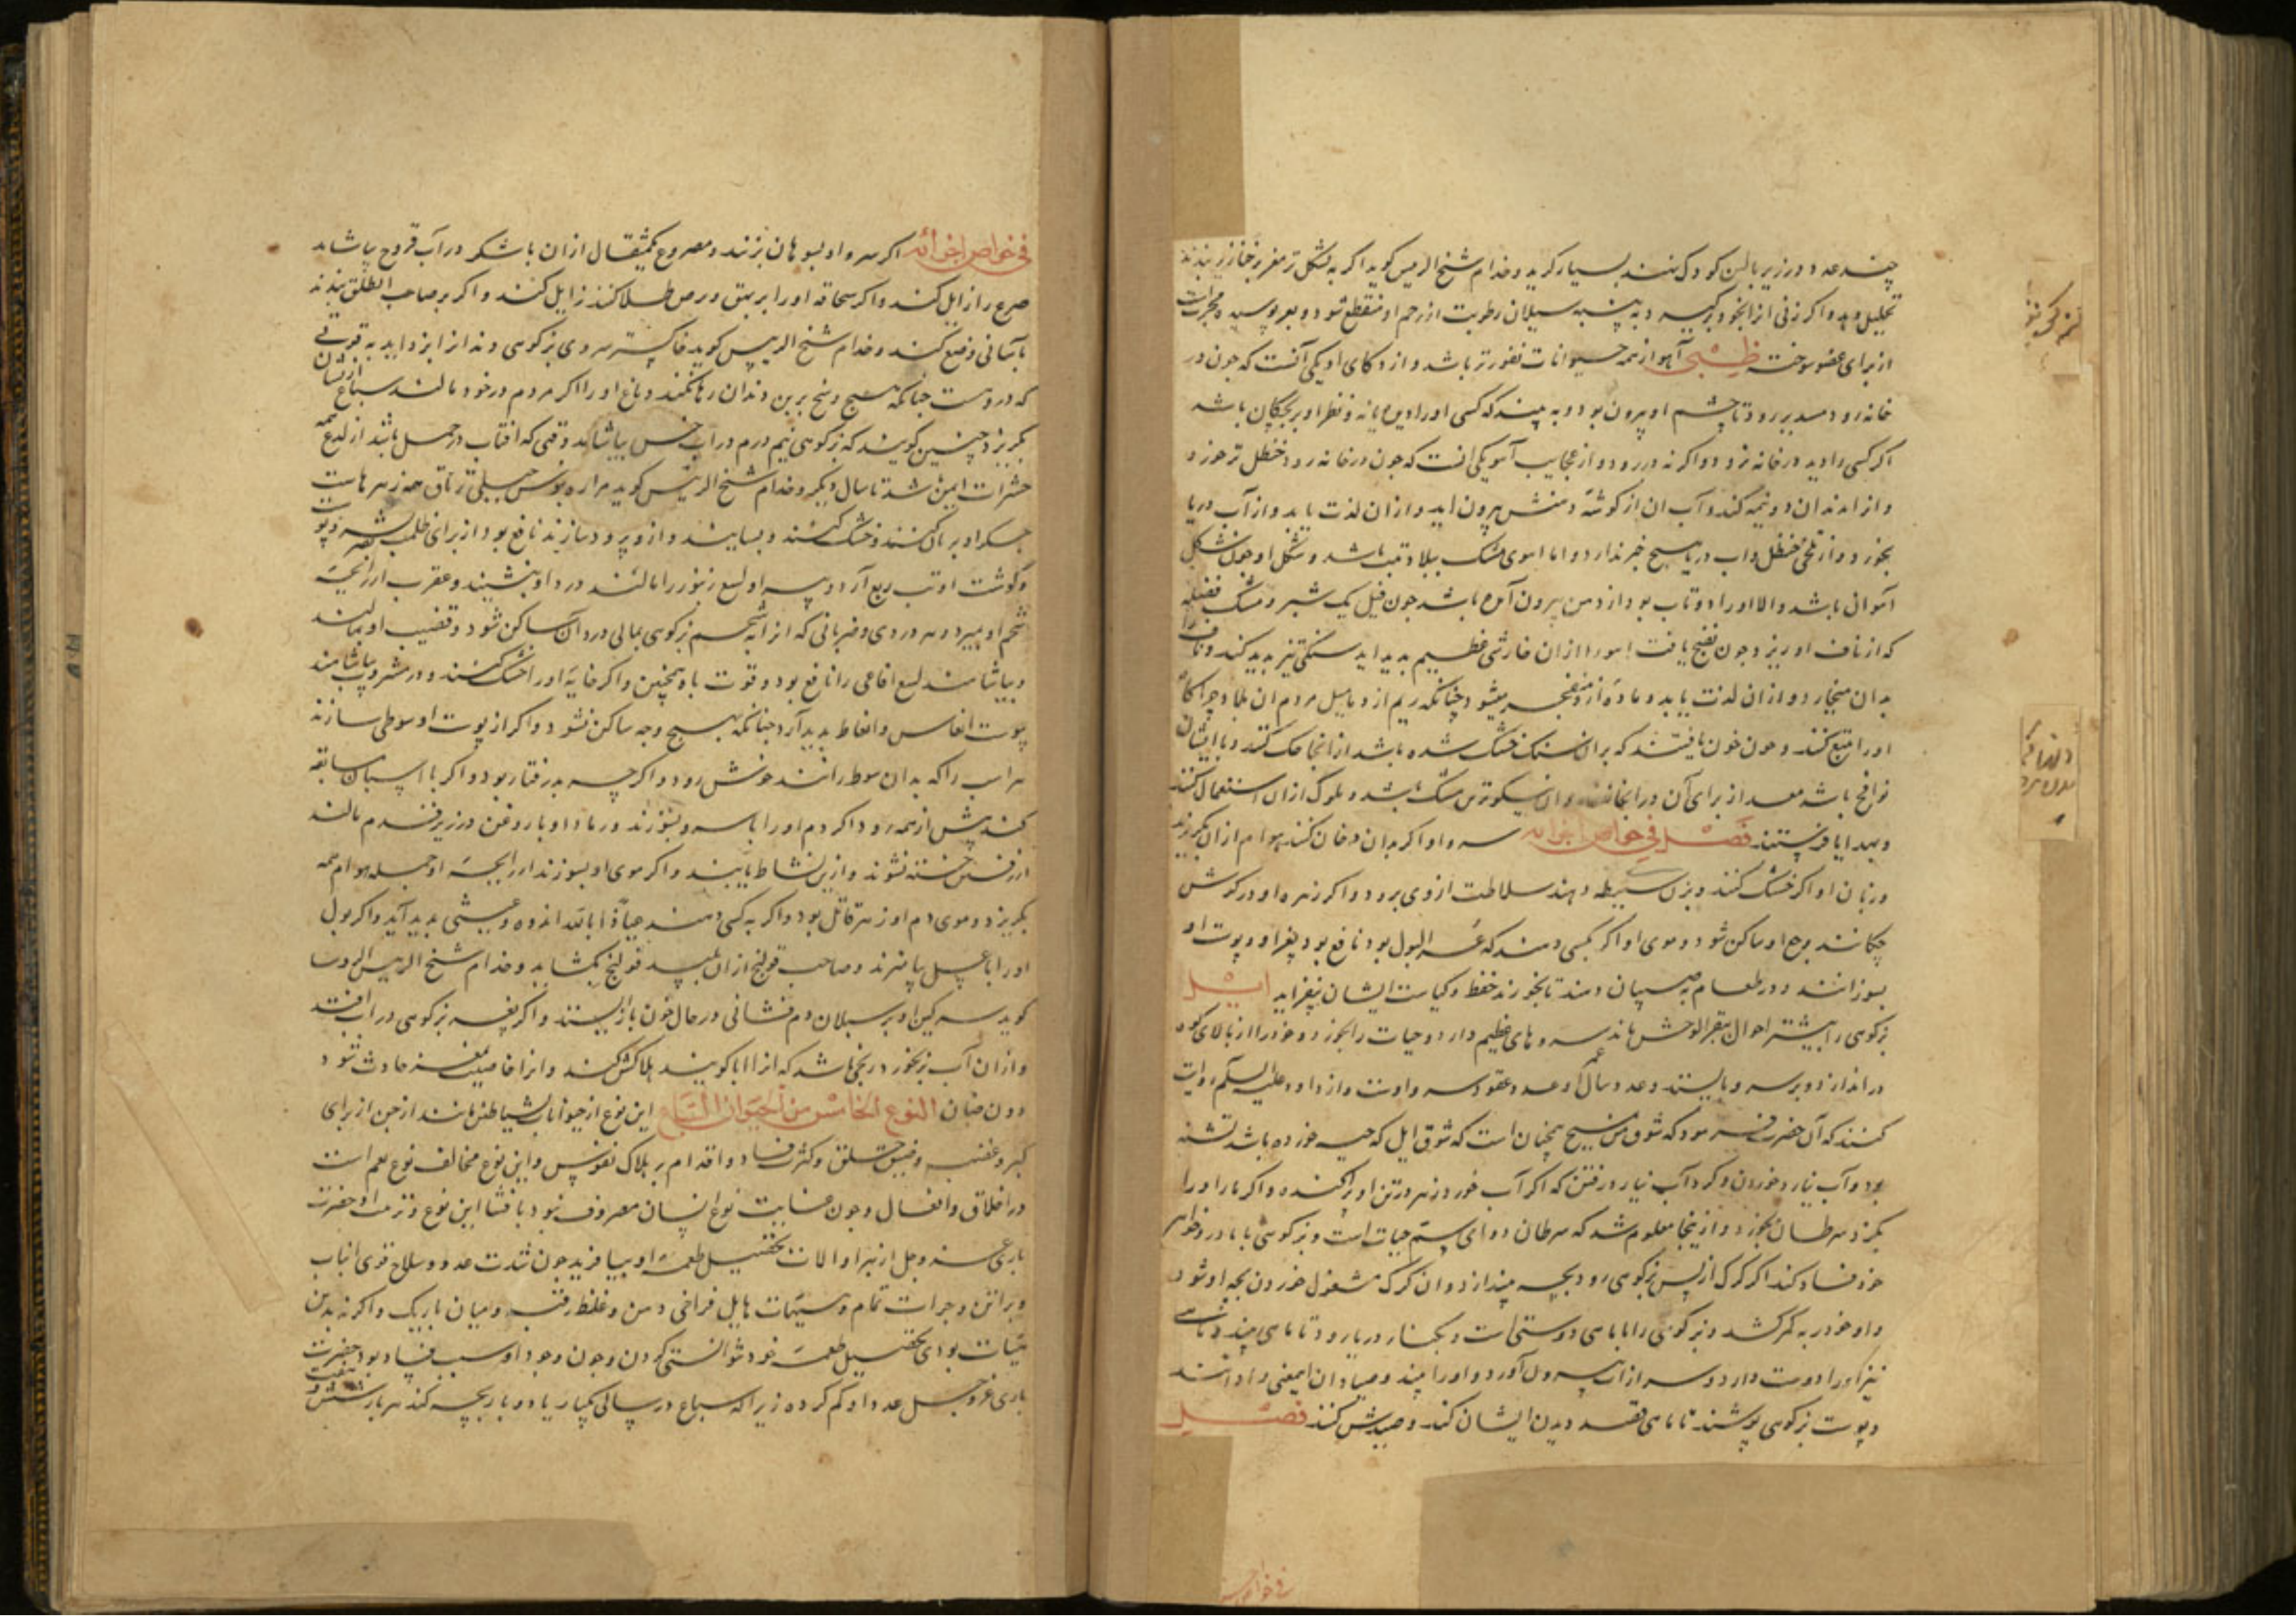 چند عدد در زیر بالین کودک کنند بسیار کرید و خدام شیخ الرییس کوید اکر به تشکل تر مغر بر خنازیر نهند
تحلیل دهد و اکر زنی از آن بخود برکیرد به پشم سیلان رطوبت از رحم او منقطع شود و بعر پوسیده مجرب است
از برای عضو سوخته ظبی آهو از همه حیوانات نفورتر باشد و از ذکای او یکی آنست که جون در
خانه رود مدبر رود تا چشم او بیرون بود و به بیند که کسی او را می بیند و نظر او بر بچکان باشد
اکر کسی را دید در خانه نرود و اکر نه در رود و از عجایب آهو یکی انست که جون در خانه رود حنظل تر خورد
و از دندان دو نیمه کند و آب ان از کوشه دهنش بیرون اید و از ان لذت یابد و از آب دریا
بخورد و از تلخی حنظل و اب دریا هیچ خبر ندارد و اما اهوی مشک ببلاد تبت باشد و شکل او جون شکل
آهوان باشد و الا او را دو ناب بود از دهن بیرون آمده باشد جون فیل یک شبر و مشک فضله
که از ناف او ریزد و جون نضج یافت اهو را از ان خارشی عظیم پدید اید سنکی تیز پدید کند و ناف را
بدان میخارد و از ان لذت یابد و ماده از و منفجر میشود چنانکه ریم از دمامیل مردم ان بلاد چراکاه
او را تتبع کنند و جون خون یافتند که بران سنک خشک شده باشد از انجا حک کنند و با ایشان
نوافج باشد معد از برای آن در انجا نهند و ان نیکوترین مشک باشد و ملوک ازان استعمال کنند
و بهدایا فرستند فصل فی خواص اجزائه سرو او اکر بدان دخان کنند هوام از ان بکریزند
و زبان او اکر خشک کنند و بزن سلیطه دهند سلاطت از وی برود و اکر زهره او در کوش
چکانند وجع او ساکن شود و موی او اکر بکسی دهند که عسر البول بود نافع بود بعر او و پوست او
بسوزانند و در طعام به صبیان دهند تا بخورند حفظ و کیاست ایشان بیفزاید ایل
بزکوهی را بیشتر احوال ببقر الوحش ماند سرو های عظیم دارد و حیات را بخورد و خود را از بالای کوه
در اندازد و بر سرو بایستد و عدد سال عمر او عدد عقود سرو اوست و از داود علیه السلم روایت
کنند که آن حضرت فرمود که شوق من بمسیح همچنان است که شوق ایل که حیه خورده باشد تشنه
بود و آب نیارد خوردن و کرد آب نیارد رفتن که اکر آب خورد زهر در تن او پراکنده و اکر مار او را
بکزد سرطان بخورد و از ینجا معلوم شد که سرطان دوای سم حیات است و بزکوهی با مادر و خواهر
خود فساد کند اکر کرک از پس بزکوهی رود بچه بیندازد و ان کرک مشغول خوردن بچه او شود
و او خود را به کمر کشد و بزکوهی را با ماهی دوستی است و بکنار دریا رود تا ماهی بیند و ماهی
نیز او را دوست دارد و سر از آب بیرون آورد و او را بیند و صیادان این معنی را دانند
و پوست بزکوهی پوشند تا ماهی قصد دیدن ایشان کند و صیدش کنند فصل
فی خواص
فی خواص اجزائه اکر سرو او بسوهان بزنند و مصروع یکمثقال ازان با شکر در آب قروح بیاشامد
صرع را زایل کند و اکر سحاقه او را بر بهق و برص طلا کنند زایل کند و اکر بر صاحب الطلق بندند
بآسانی وضع کند و خدام شیخ الرییس کوید خاکستر سروی بزکوهی دندانرا بزداید به قوتی
که در وست چنانکه هیچ وسخ برین دندان رها نکند دماغ او را اکر مردم در خود مالند سباع از یشان
بکریزد چنین کویند که بزکوهی نیم درم در آب خس بیاشامد وقتی که افتاب در حمل باشد از لدغ همه
حشرات ایمن باشد تا سال دیکر و خدام شیخ الرییس کوید مراره یوس جبلی تریاق همه زهرهاست
جکر او بریان کنند و خشک کنند و بسایند و از و برود سازند نافع بود از برای ظلمت بصر و پوست
و کوشت او تب ربع آرد و پیه او لسع زنبور را مالند درد او بنشیند و عقرب از رایحه
شحم او بمیرد و سر دردی و ضربانی که از انه شحم بزکوهی بمالی درد آن ساکن شود و قضیب او بمالند
و بیاشامند لسع افاعی را نافع بود و قوت باه همچنین و اکر خایه او را خشک کنند و در مشروب بیاشامند
پوست انعاس و انعاظ پدید آرد چنانکه بهیچ وجه ساکن نشود و اکر از پوست او سوطی سازند
هر اسب را که بدان سوط رانند خوش رود و اکرچه بد رفتار بود و اکر با اسپان سابقه
کنند پیش از همه رود و اکر دم او را با سرو بسوزند و رماد او با روغن در زیر قدم مالند
از رفتن خسته نشوند و ازین نشاط یابند و اکر موی او بسوزند از رایحه او جمله هوام همه
بکریزد و موی دم او زهر قاتل بود و اکر به کسی دهند عیاذا بالله اندوه و غشی پدید آید و اکر بول
او را با عسل بیامیزند و صاحب قولنج ازان بلیسد قولنج بکشاید و خدام شیخ الرییس الروسا
کوید سرکین او بر سیلان دم فشانی در حال خون باز ایستد و اکر بغر بزکوهی در آب افتد
و از ان آب بز بخورد رنجی باشد که از ابا کویند هلاکش کند و انرا خاصیت بز حادث شود
دون ضان النوع الخامس من الحیوان السباع این نوع از حیوانات بشیاطین مانند از جن از برای
کبر و غضب و ضیق خلق و کثرت فساد و اقدام بر هلاک نفوس و این نوع مخالف نوع نعم است
در اخلاق و افعال و جون عنایت نوع انسان مصروف نبود بافشا این نوع و تربیت او حضرت
باری عز و جل از بهر او الات تحصیل طعمه او بیافرید جون شدت عدو و سلاح قوی انیاب
و براثن و جرات تمام و سیمات هایل فراخی دهن و غلظ رقبه و میان باریک و اکر نه بدین
هیات بودی تحصیل طعمه خود نتوانستی کردن و جون وجود او سبب فساد بود حضرت
باری عز و جل عدد او کم کرده زیرا که سباع در سالی یکبار یا دو بار بچه کند هر بار شش و هفت